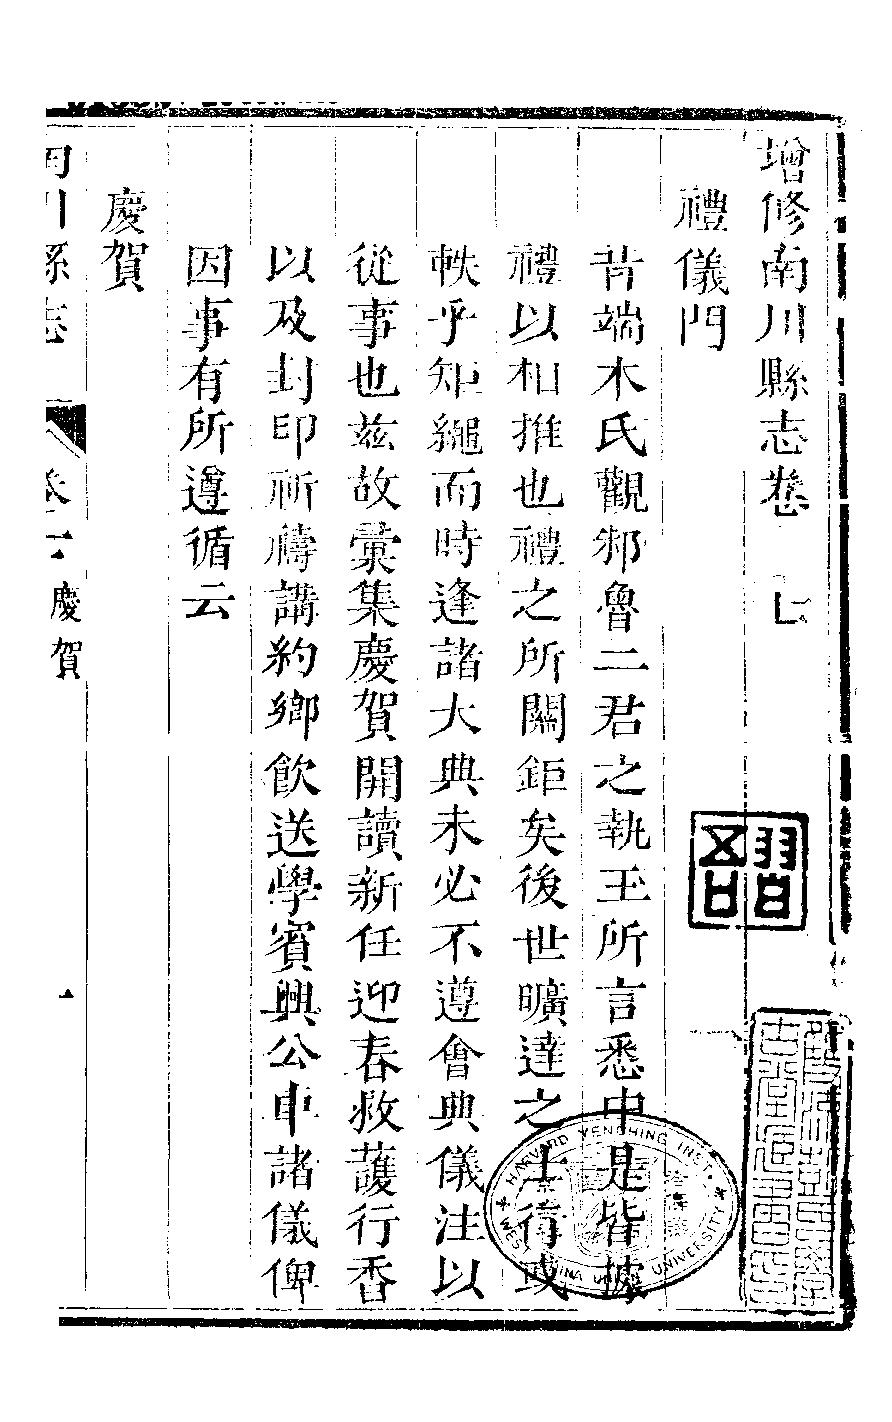 增修南川縣志卷 七
禮儀門
昔端木氏觀邾魯二君之執玉所言悉中是皆據
禮以相推也禮之所關鉅矣後世曠達之士或
軼乎矩繩而時逢諸大典未必不遵會典儀注以
從事也茲故彙集慶賀開讀新任迎春救護行香
以及封印祈禱講約鄉飲送學賓興公車諸儀俾
因事有所遵循云
慶賀
南川縣志 卷七 慶賀 一
HARVARD YENCHING INST.
WEST CHINA UNION UNIVERSITY